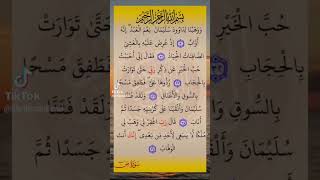 بسم الله الرحمن الرحيم
وَوَهَبْنَا لِدَاوُودَ سُلَيْمَانَ نِعْمَ الْعَبْدُ إِنَّهُ
أَوَّابٌ إِذْ عُرِضَ عَلَيْهِ بِالْعَشِيِّ
الصَّافِنَاتُ الْجِيَادُ فَقَالَ إِنِّي أَحْبَبْتُ
حُبَّ الْخَيْرِ عَن ذِكْرِ رَبِّي حَتَّى تَوَارَتْ
بِالْحِجَابِ رُدُّوهَا عَلَيَّ فَطَفِقَ مَسْحًا
بِالسُّوقِ وَالْأَعْنَاقِ وَلَقَدْ فَتَنَّا
سُلَيْمَانَ وَأَلْقَيْنَا عَلَى كُرْسِيِّهِ جَسَدًا ثُمَّ
أَنَابَ قَالَ رَبِّ اغْفِرْ لِي وَهَبْ لِي
مُلْكًا لَّا يَنبَغِي لِأَحَدٍ مِّن بَعْدِي إِنَّكَ أَنتَ
الْوَهَّابُ
TikTok